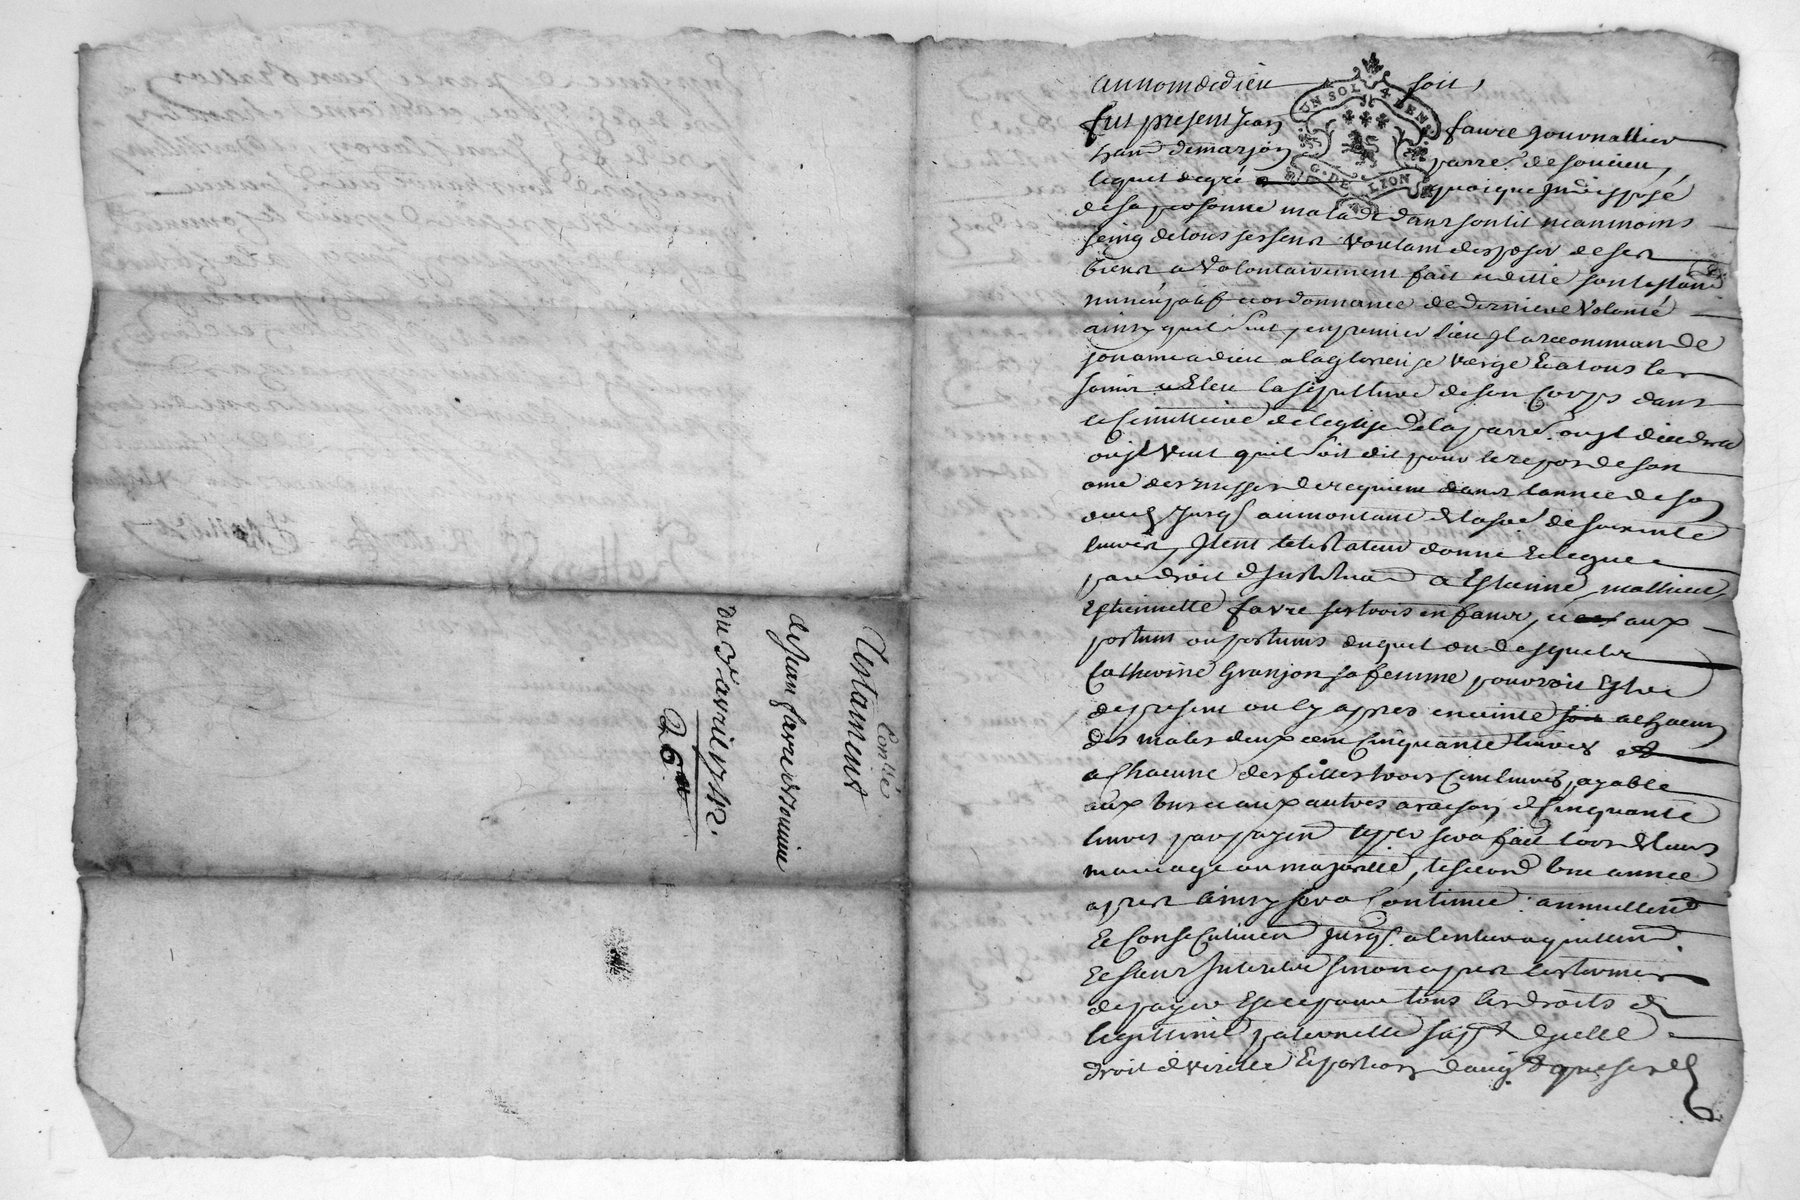 Testament
Contllé
de jean favre de soucieu
du 3e avril 1742.
26
au nom de dieu soit,
UN SOL 4 DEN
G. DE LION
fut present Jean favre Journallier
habt de marjon parre de soucieu,
lequel de gré quoique Indisposé
de sa personne malade dans son lit neanmoins
seing de tous ses sens voulant disposer de ses
biens a volontairement fait et dicté son testamt
nuncupatif et ordonnance de derniere volonté
ainsy quil suit, en premier lieu Il a recommandé
son ame a dieu a la glorieuse vierge Et a tous les
saints a Eleu la sepulture de son Corps dans
le Cimittiere de leglise de la parre ou Il deceddera
ou Il veut quil soit dit pour le repos de son
ame des messes de requiem dans lannée de son
deces Jusqs au montant de la sôe de soixante
livres, Item le testateur donne Et legue
par droit d'Institution a Estienne, mathieu,
Estiennette favre ses trois enfans, et aux
postum ou postums duquel ou desquels
Catherine Granjon sa femme pourroit Estre
de present ou cy apres enceinte a chacun
des males deux cent Cinquante livres et
a Chacune des filles trois Cent livres, payable
aux uns et aux autres a raison de Cinquante
livres par payen le pr sera fait lors de leurs
mariage ou majorité, le second une année
apres ainsy sera Continué annuellemt
Et Consecutivemt Jusqs a lentier aquittemt
Et sans Interests sinon apres les termes
de payer Et ce pour tous les droits de
legittime paternelle supplt dycelle
droit de virille Et portion